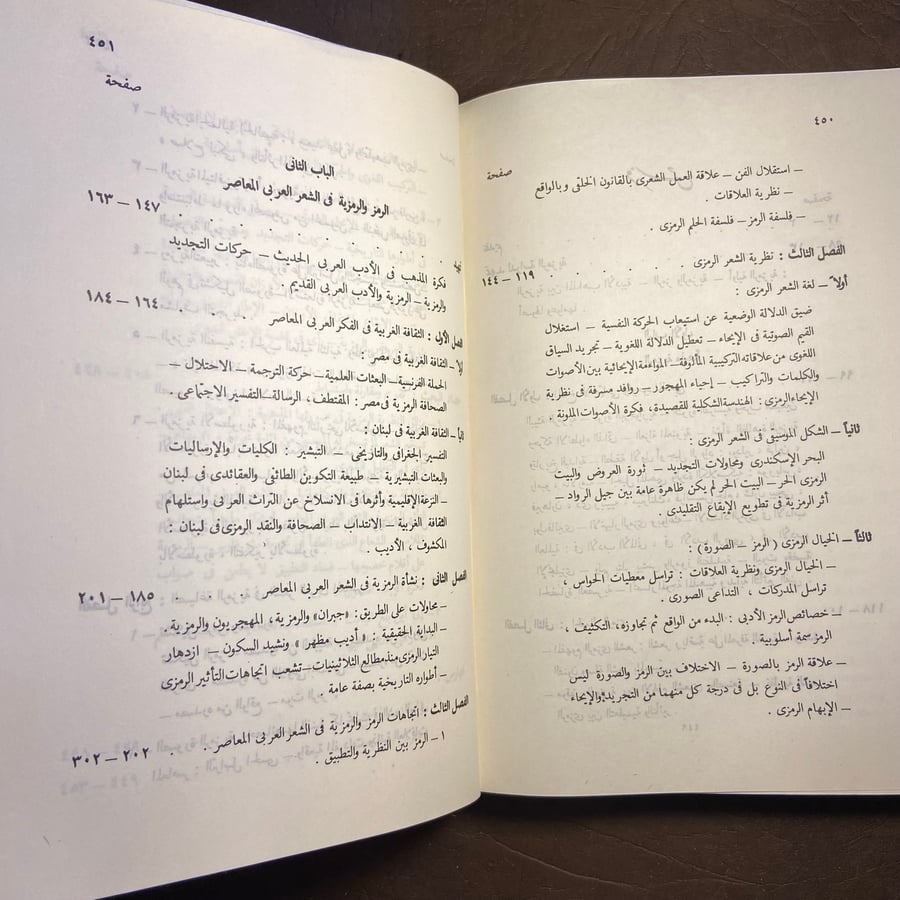 ٤٥٠
صفحة
– استقلال الفن – علاقة العمل الشعرى بالقانون الخلقى وبالواقع
– نظرية العلاقات .
– فلسفة الرمز – فلسفة الحلم الرمزى .
الفصل الثالث : نظرية الشعر الرمزى . . . . . ١١٩ – ١٤٤
أولاً – لغة الشعر الرمزى :
ضيق الدلالة الوضعية عن استيعاب الحركة النفسية – استغلال
القيم الصوتية فى الإيحاء – تعطيل الدلالة اللغوية – تجريد السياق
اللغوى من علاقاته التركيبية المألوفة – المواءمة الإيحائية بين الأصوات
والكلمات والتراكيب – إحياء المهجور – روافد مسرفة فى نظرية
الإيحاء الرمزى : الهندسة الشكلية للقصيدة ، فكرة الأصوات الملونة .
ثانياً – الشكل الموسيقى فى الشعر الرمزى :
البحر الإسكندرى ومحاولات التجديد – ثورة العروض والبيت
الرمزى الحر – البيت الحر لم يكن ظاهرة عامة بين جيل الرواد –
أثر الرمزية فى تطويع الإيقاع التقليدى .
ثالثاً – الخيال الرمزى ( الرمز – الصورة ) :
– الخيال الرمزى ونظرية العلاقات : تراسل معطيات الحواس ،
تراسل المدركات ، التداعى الصورى .
– خصائص الرمز الأدبى : البدء من الواقع ثم تجاوزه ، التكثيف ،
الرمز سمة أسلوبية .
– علاقة الرمز بالصورة – الاختلاف بين الرمز والصورة ليس
اختلافاً فى النوع بل فى درجة كل منهما من التجريد والإيحاء
– الإبهام الرمزى .
٤٥١
صفحة
الباب الثانى
الرمز والرمزية فى الشعر العربى المعاصر
. . . . . . ١٤٧ – ١٦٣
فكرة المذهب فى الأدب العربى الحديث – حركات التجديد
والرمزية – الرمزية والأدب العربى القديم .
الفصل الأول : الثقافة الغربية فى الفكر العربى المعاصر . . . ١٦٤ – ١٨٤
أولا – الثقافة الغربية فى مصر :
الحملة الفرنسية – البعثات العلمية – حركة الترجمة – الاحتلال –
الصحافة الرمزية فى مصر : المقتطف ، الرسالة – التفسير الاجتماعى .
ثانياً – الثقافة الغربية فى لبنان :
التفسير الجغرافى والتاريخى – التبشير : الكليات والإرساليات
والبعثات التبشيرية – طبيعة التكوين الطائفى والعقائدى فى لبنان
– النزعة الإقليمية وأثرها فى الانسلاخ عن التراث العربى واستلهام
الثقافة الغربية – الانتداب – الصحافة والنقد الرمزى فى لبنان :
المكشوف ، الأديب .
الفصل الثانى : نشأة الرمزية فى الشعر العربى المعاصر . . . ١٨٥ – ٢٠١
– محاولات على الطريق : « جبران » والرمزية ، المهجريون والرمزية .
– البداية الحقيقية : « أديب مظهر » ونشيد السكون – ازدهار
التيار الرمزى منذ مطالع الثلاثينيات – تشعب اتجاهات التأثير الرمزى
– أطواره التاريخية بصفة عامة .
الفصل الثالث : اتجاهات الرمز والرمزية فى الشعر العربى المعاصر . . . ٢٠٢ – ٣٠٢
١ – الرمز بين النظرية والتطبيق .